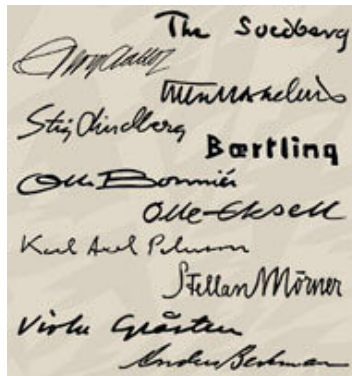 The Svedberg
Stig Lindberg
Bærtling
Olle Bonniér
Olle Eksell
Karl Axel Pehrson
Stellan Mörner
Viola Gråsten
Anders Beckman